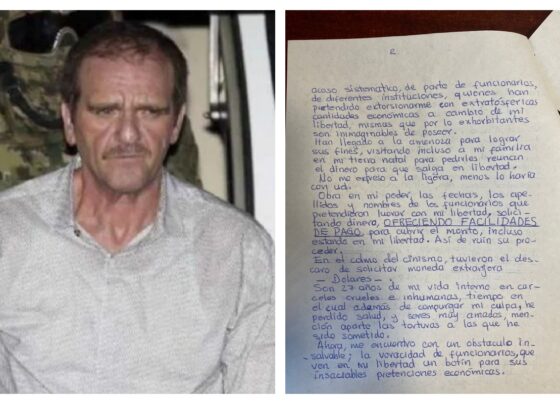 2
acoso sistematico, de parte de funcionarios,
de diferentes instituciones, quienes han
pretendido extorsionarme con extratosfericas
cantidades económicas a cambio de mi
libertad, mismas que por lo exhorbitantes
son inimaginables de poseer.
Han llegado a la amenaza para lograr
sus fines, visitando incluso a mi familia
en mi tierra natal para pedirles reunan
el dinero para que salga en libertad.
No me expreso a la ligera, menos lo haría
con ud.
Obra en mi poder, las fechas, los ape-
llidos y nombres de los funcionarios que
pretendieron lucrar con mi libertad, solici-
tando dinero, OFRECIENDO FACILIDADES
DE PAGO, para cubrir el monto, incluso
estando en mi libertad. Así de ruin su pro-
ceder.
En el colmo del cinismo, tuvieron el des-
caro de solicitar moneda extranjera
— Dolares —.
Son 27 años de mi vida interno en car-
celes crueles e inhumanas, tiempo en
el cual además de compurgar mi culpa, he
perdido salud, y seres muy amados, men-
ción aparte las torturas a las que he
sido sometido.
Ahora, me encuentro con un obstaculo in-
salvable; la voracidad de funcionarios, que
ven en mi libertad un botín para sus
insaciables pretenciones económicas.